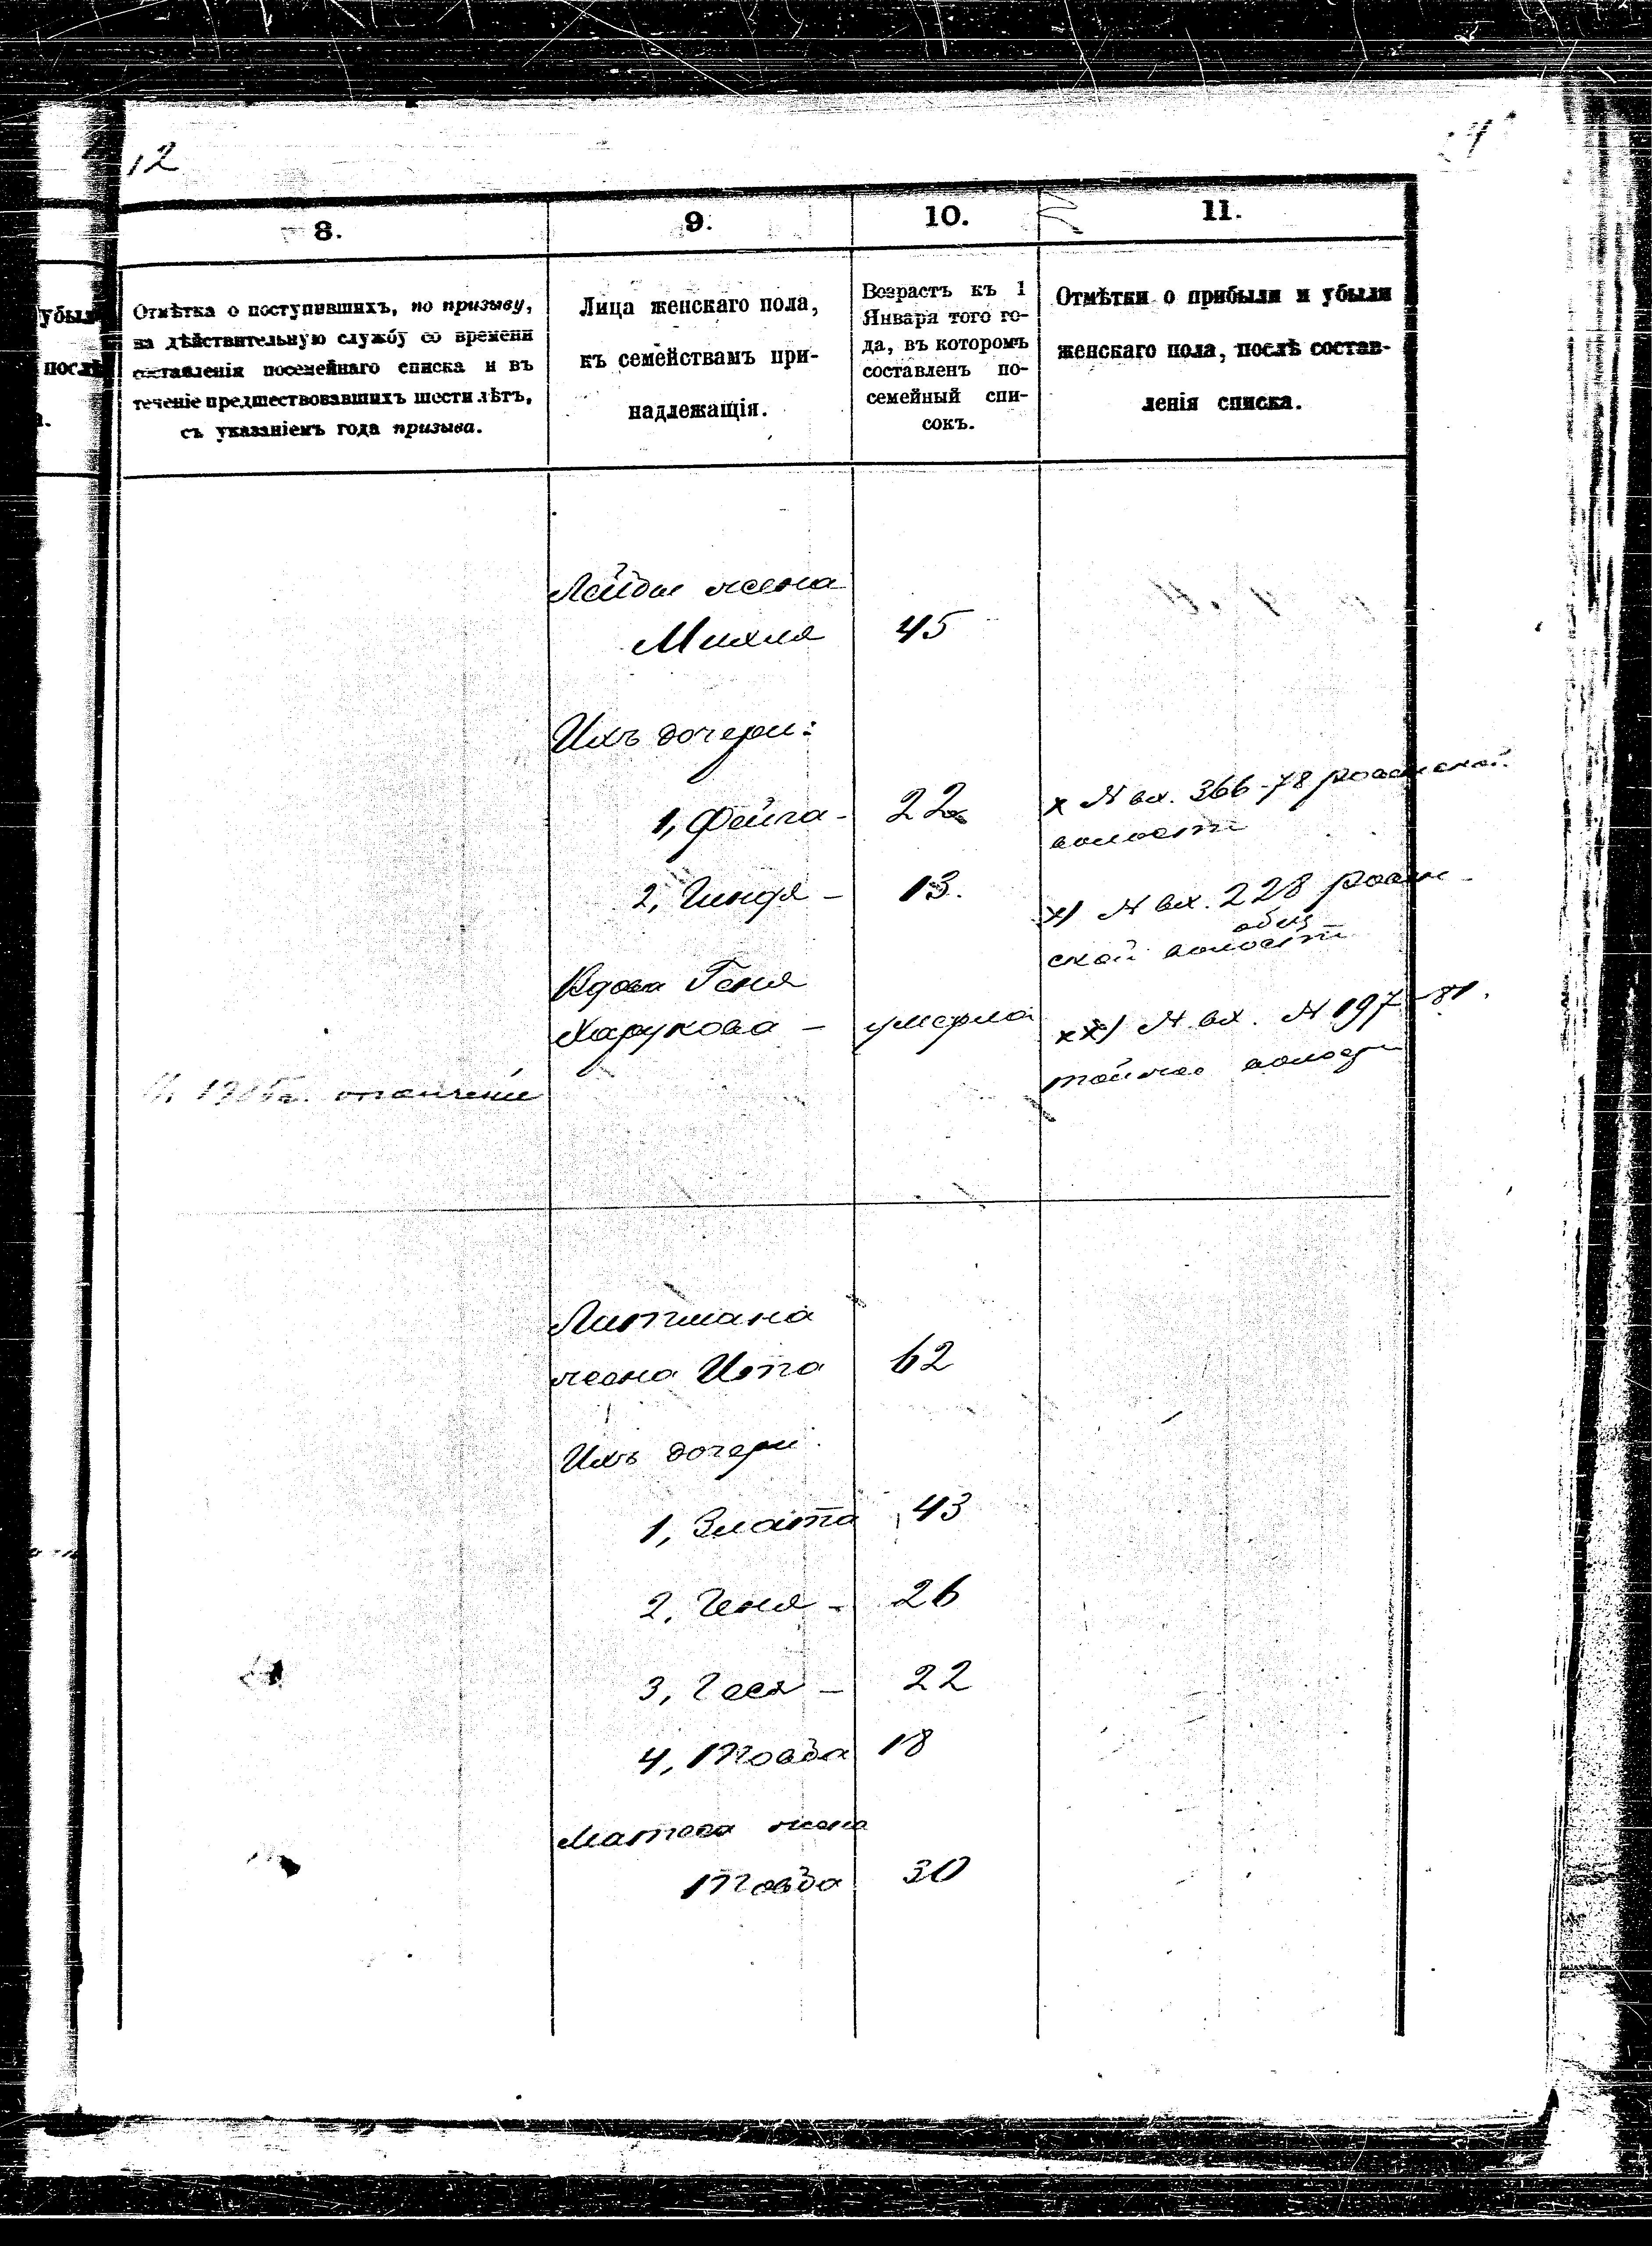 12
8.
9.
10.
11.
убыл
послѣ
Отмѣтка о поступившихъ, по призыву,
на дѣйствительную службу со времени
составленія посемейнаго списка и въ
теченіе предшествовавшихъ шести лѣтъ,
съ указаніемъ года призыва.
Лица женскаго пола,
къ семействамъ при-
надлежащія.
Возрастъ къ 1
Января того го-
да, въ которомъ
составленъ по-
семейный спи-
сокъ.
Отмѣтки о прибыли и убыли
женскаго пола, послѣ состав-
ленія списка.
жена
Михля 45
Ихъ дочери:
1, Фейга - 22
х № вх. 366-78
волости
2, Гиндя - 13.
х) № вх. 228
ской волости
Вдова Геня
Харукова - умерла
хх) № вх. № 197-81.
Липмана
жена Ита 62
Ихъ дочери
1, Злата 43
2, Геня - 26
3, Геся - 22
4, Товба 18
жена
Товба 30